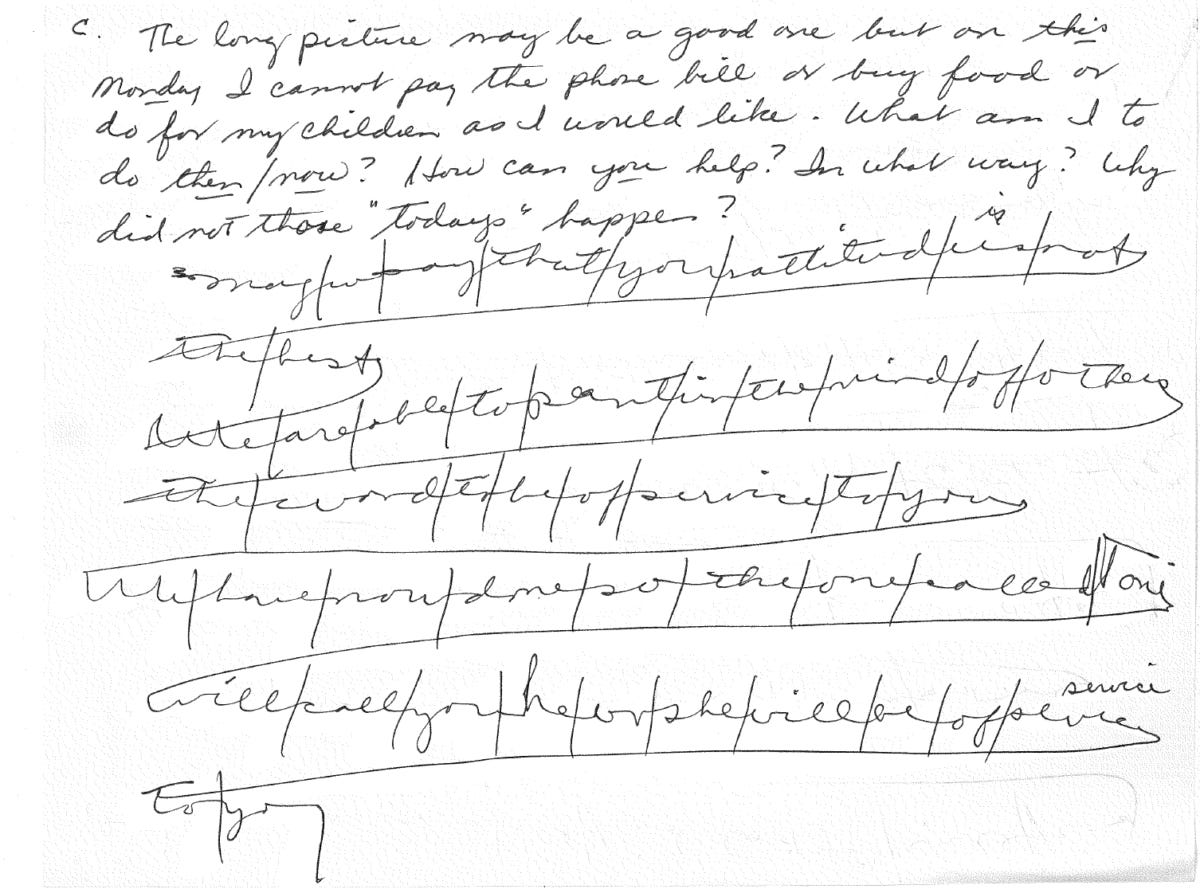 C. The long picture may be a good one but on this
Monday I cannot pay the phone bill or buy food or
do for my children as I would like. What am I to
do then/now? How can you help? In what way? Why
did not those "todays" happen?
may we say that your attitud is is not
the best
We are able to plant in the mind of others
the word to be of service to you
We have now done so the one called one
will call you he or she will be of sevice service
to you